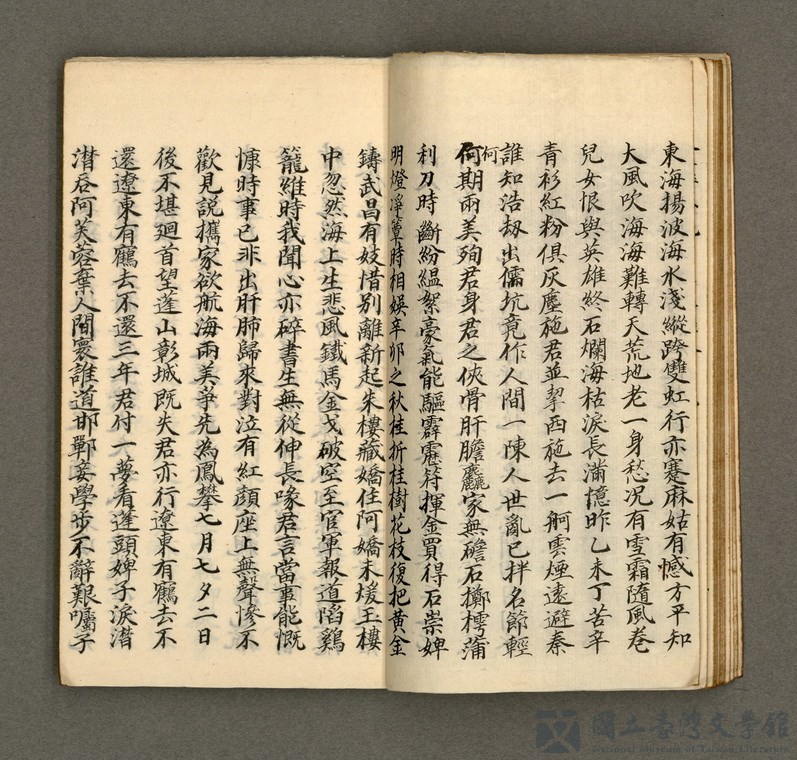 東海揚波海水淺縱跨雙虹行亦蹇麻姑有憾方平知
大風吹海海難轉天荒地老一身愁况有雪霜隨風卷
兒女恨與英雄終石爛海枯淚長滿憶昨乙未丁苦辛
青衫紅粉俱灰塵施君並挈西施去一舸雲煙遠避秦
誰知浩劫出儒坑竟作人間一陳人世亂已拌名節輕
何
何期兩美殉君身君之俠骨肝膽麤家無礛石擲樗蒲
利刀時斷紛縕絮豪氣能驅霹靂符揮金買得石崇婢
明燈凈簟時相娛辛卯之秋桂折桂樹花枝復把黃金
鑄武昌有妓惜別離新起朱樓藏嬌住阿嬌未煖玉樓
中忽然海上生悲風鐵馬金戈破空至官軍報道陷雞
籠維時我聞心亦碎書生無從伸長喙君言當事能慨
慷時事已非出肝肺歸來對泣有紅顔座上無聲慘不
歡見説攜家欲航海兩美爭先為鳳攀七月七夕二日
後不堪廻首望蓬山彰城既失君亦行遼東有鶴去不
還遼東有鶴去不還三年君付一夢看蓬頭婢子淚潸
潸吞阿芙蓉棄人間寰誰道邯鄲妾學步不辭艱囑子
國立臺灣文學館
National Museum of Taiwan Literature